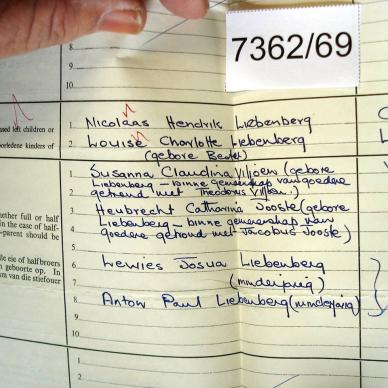 7362/69
8.
9.
10.
1. Nicolaas Hendrik Liebenberg
children or
2. Louise Charlotte Liebenberg
kinders of
(gebore
1. Susanna Claudina Viljoen (gebore
Liebenberg – binne gemeenskap van goedere
2. getroud met Theodorus Viljoen.)
3. Heubrecht Catharina Jooste (gebore
ether full or half
Liebenberg – binne gemeenskap van
in the case of half-
4. goedere getroud met Jacobus Jooste)
-parent should be
5.
6. Lewies Josua Liebenberg
eie of halfbroers
7. (minderjarig)
geboorte op. In
van die stiefouer
8. Anton Paul Liebenberg (minderjarig)
9.
10.
1.
2.